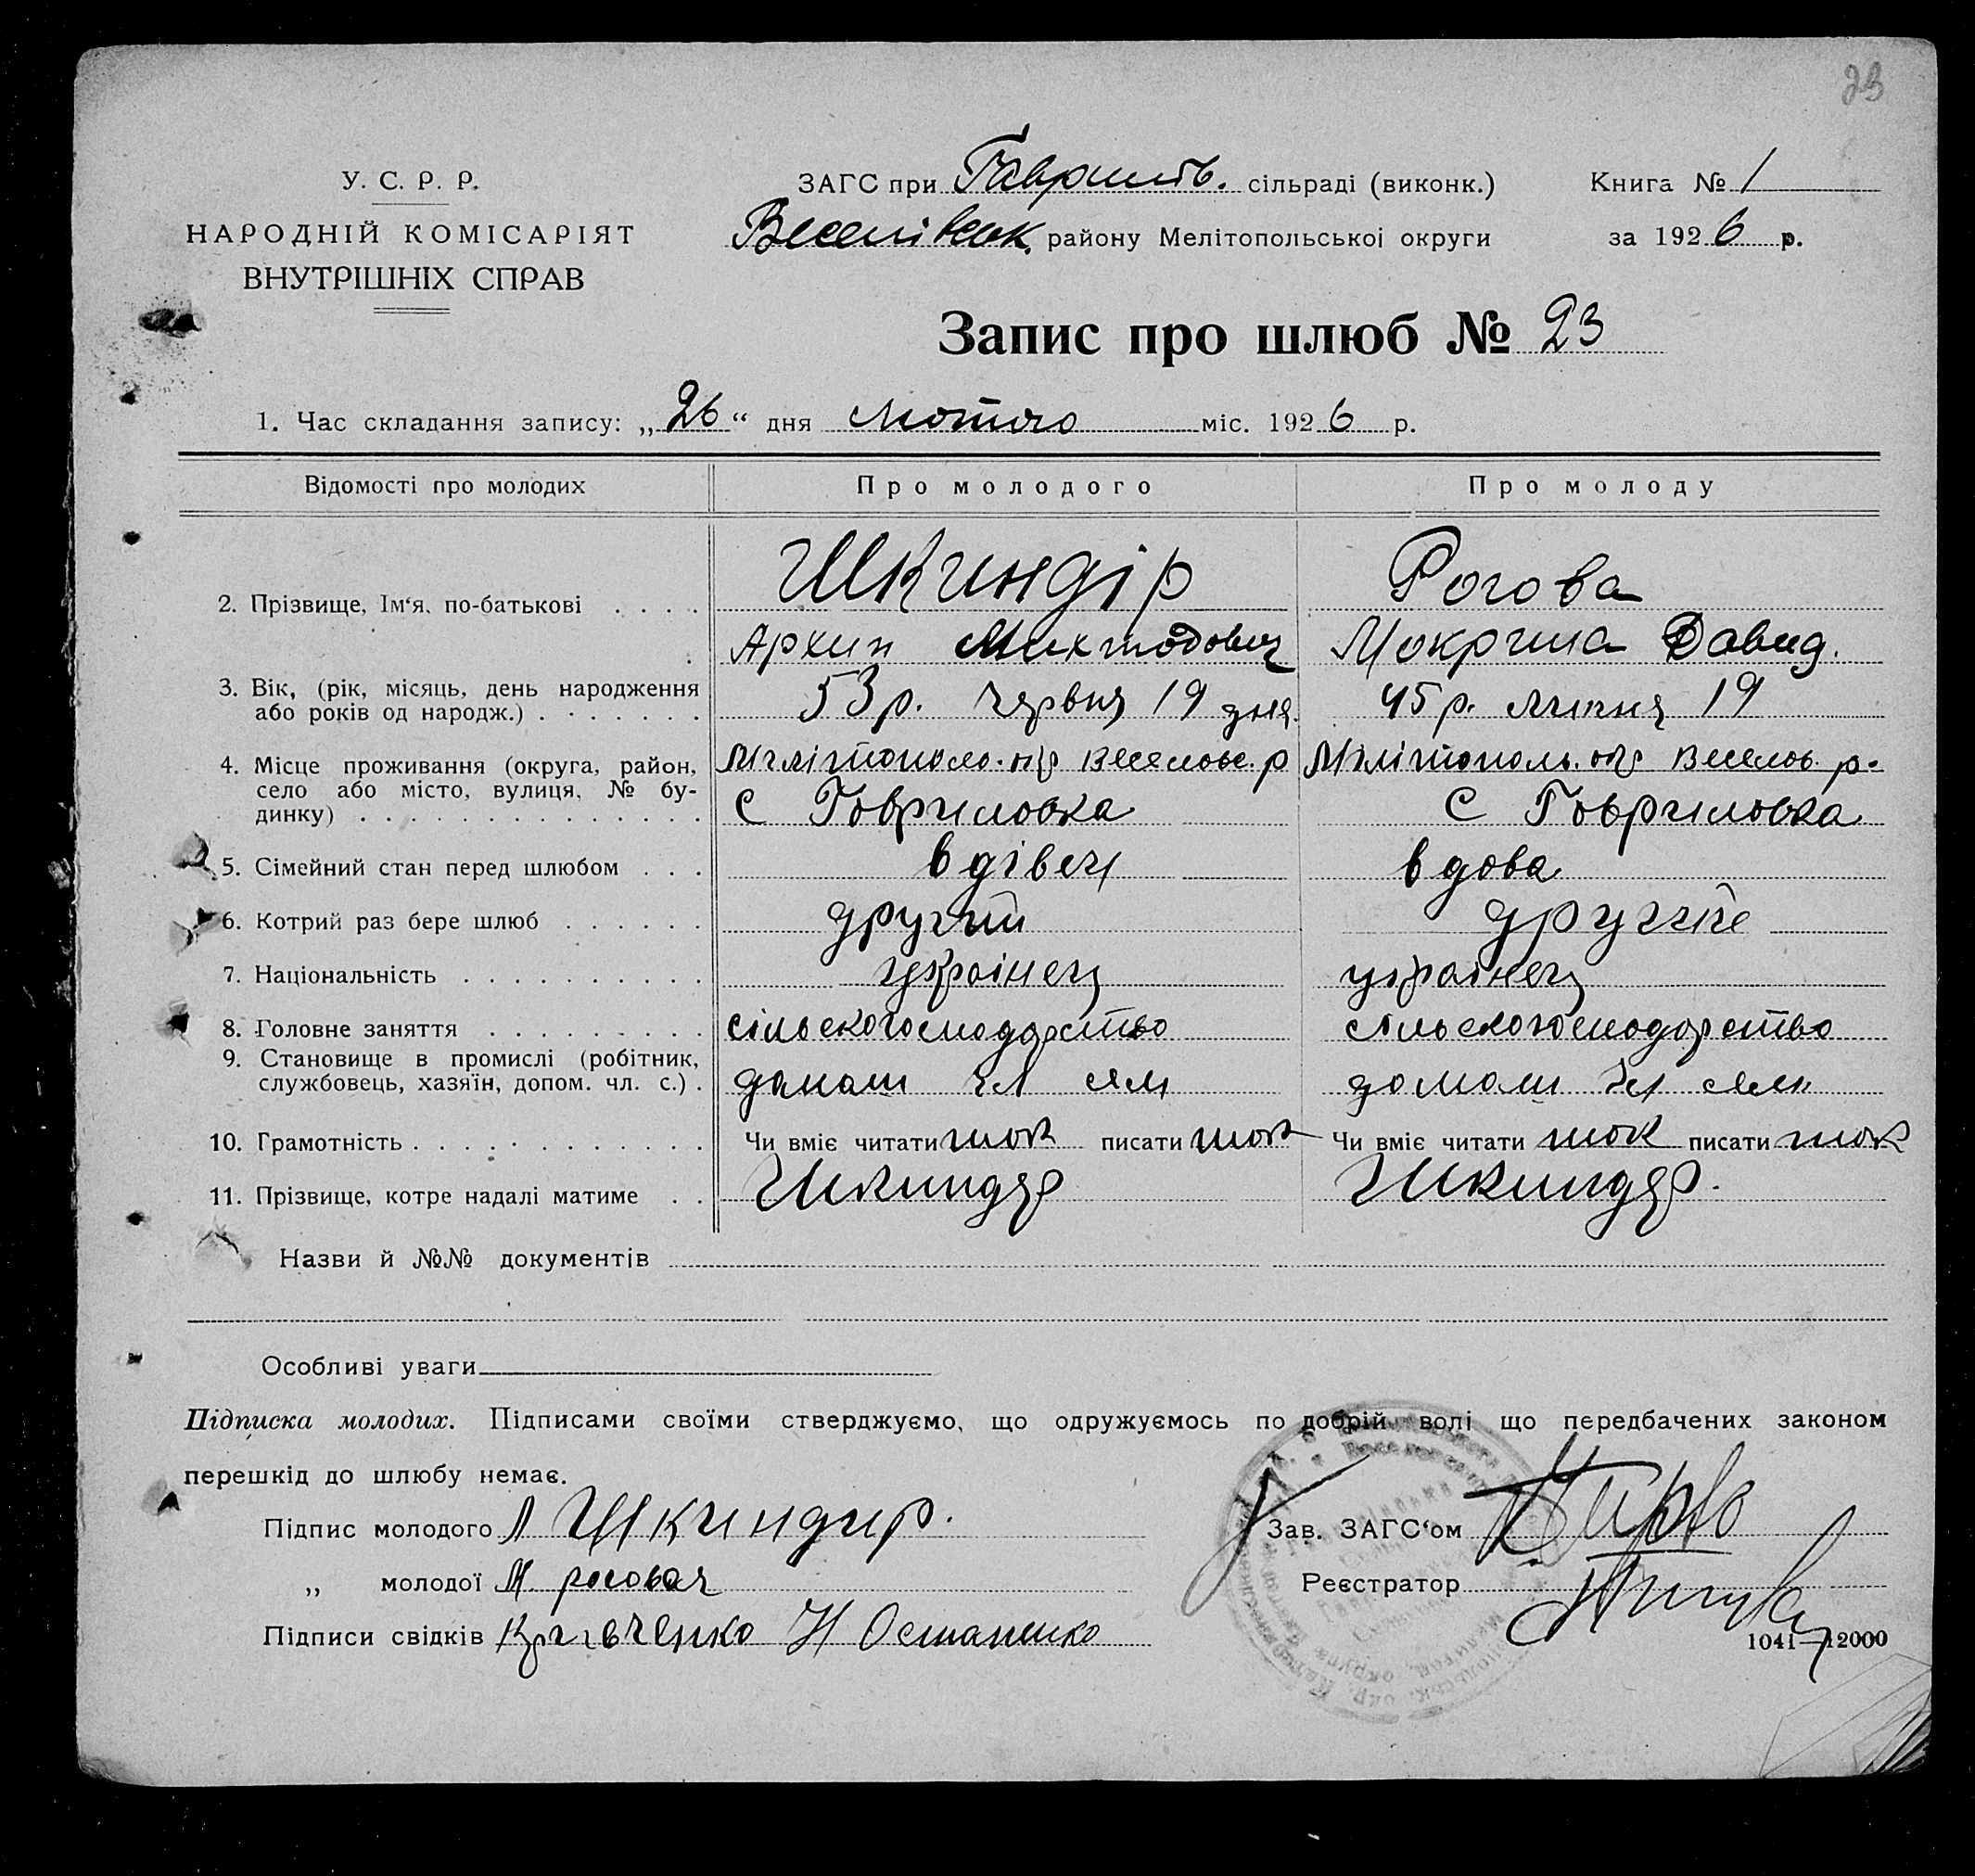 23
У. С. Р. Р.
НАРОДНІЙ КОМІСАРІЯТ
ВНУТРІШНІХ СПРАВ
ЗАГС при Гаврилів. сільраді (виконк.)
Веселівськ. району Мелітопольської округи
Книга № 1
за 1926 р.
Запис про шлюб № 23
1. Час складання запису: „26“ дня Лютого міс. 1926 р.
Відомості про молодих
Про молодого
Про молоду
2. Прізвище, Ім‘я, по-батькові
Шкиндір
Архип
Рогова
Мокрина Давид.
3. Вік, (рік, місяць, день народження
або років од народж.)
53 р. червня 19 дня.
45 р. липня 19
4. Місце проживання (округа, район,
село або місто, вулиця, № бу-
динку)
Мелітополь. окр Веселовс. р
с Говриловка
Мелітополь. окр Веселов. р.
с Говриловка
5. Сімейний стан перед шлюбом
вдівец
вдова
6. Котрий раз бере шлюб
другий
7. Національність
українец
українец
8. Головне заняття
сільскогосподарство
сільскогосподарство
9. Становище в промислі (робітник,
службовець, хазяїн, допом. чл. с.)
чл сем
чл сем
10. Грамотність
Чи вміє читати так писати так
Чи вміє читати так писати так
11. Прізвище, котре надалі матиме
Шкиндер
Шкиндер.
Назви й №№ документів
Особливі уваги
Підписка молодих. Підписами своїми стверджуємо, що одружуємось по добрій волі що передбачених законом
перешкід до шлюбу немає.
Підпис молодого А Шкиндир.
„ молодої М росовая
Підписи свідків Кривченко Н Остапенко
Зав. ЗАГС‘ом
Реєстратор
1041—12000